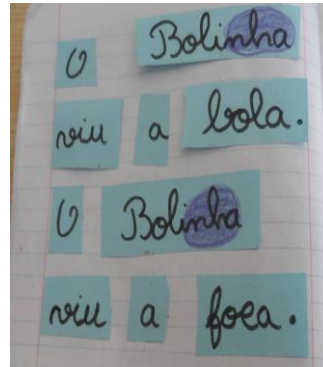 O Bolinha
viu a bola.
O Bolinha
viu a foca.